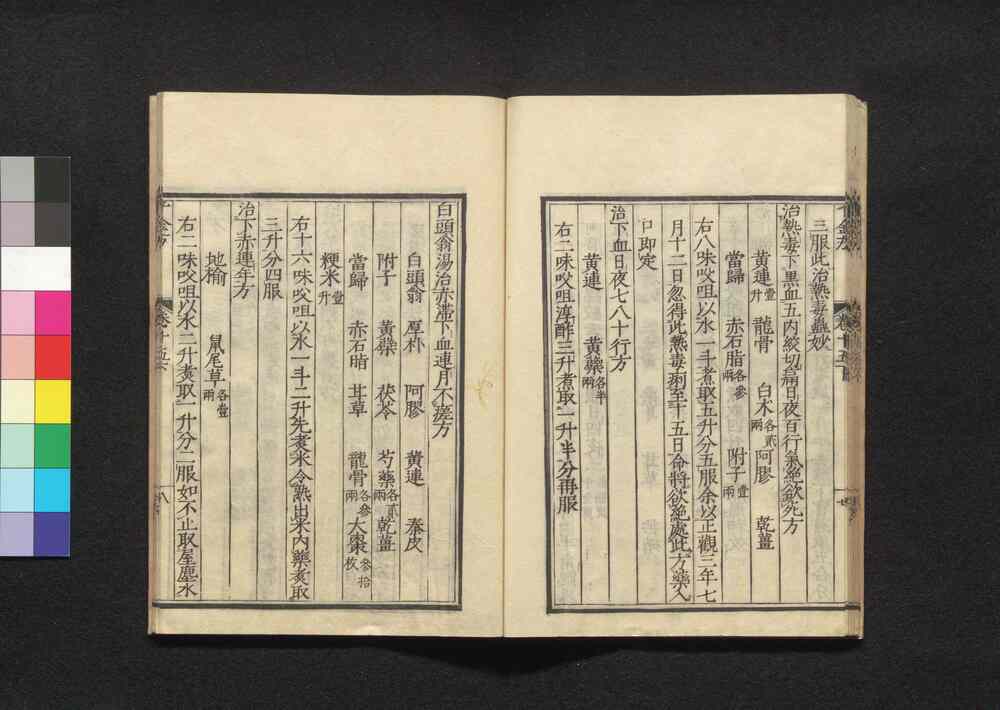 三服此治熱毒蠱妙
治熱毒下黑血五内絞切痛日夜百行氣絶欲死方
黄連壹升 龍骨 白术各貳兩 阿膠 乾薑
當歸 赤石脂各參兩 附子壹兩
右八味㕮咀以水一斗煮取五升分五服余以正觀三年七
月十二日忽得此熱毒痢至十五日命將欲絶處此方藥入
口即定
治下血日夜七八十行方
黄連 黄蘗各半兩
右二味㕮咀淳酢三升煮取一升半分再服
白頭翁湯治赤滯下血連月不瘥方
白頭翁 厚朴 阿膠 黄連 秦皮
附子 黄蘗 茯苓 芍藥各貳兩 乾薑
當歸 赤石脂 甘草 龍骨各參兩 大棗參拾枚
粳米壹升
右十六味㕮咀以水一斗二升先煮米令熟出米内藥煮取
三升分四服
治下赤連年方
地榆 鼠尾草各壹兩
右二味㕮咀以水二升煮取一升分二服如不止取屋塵水